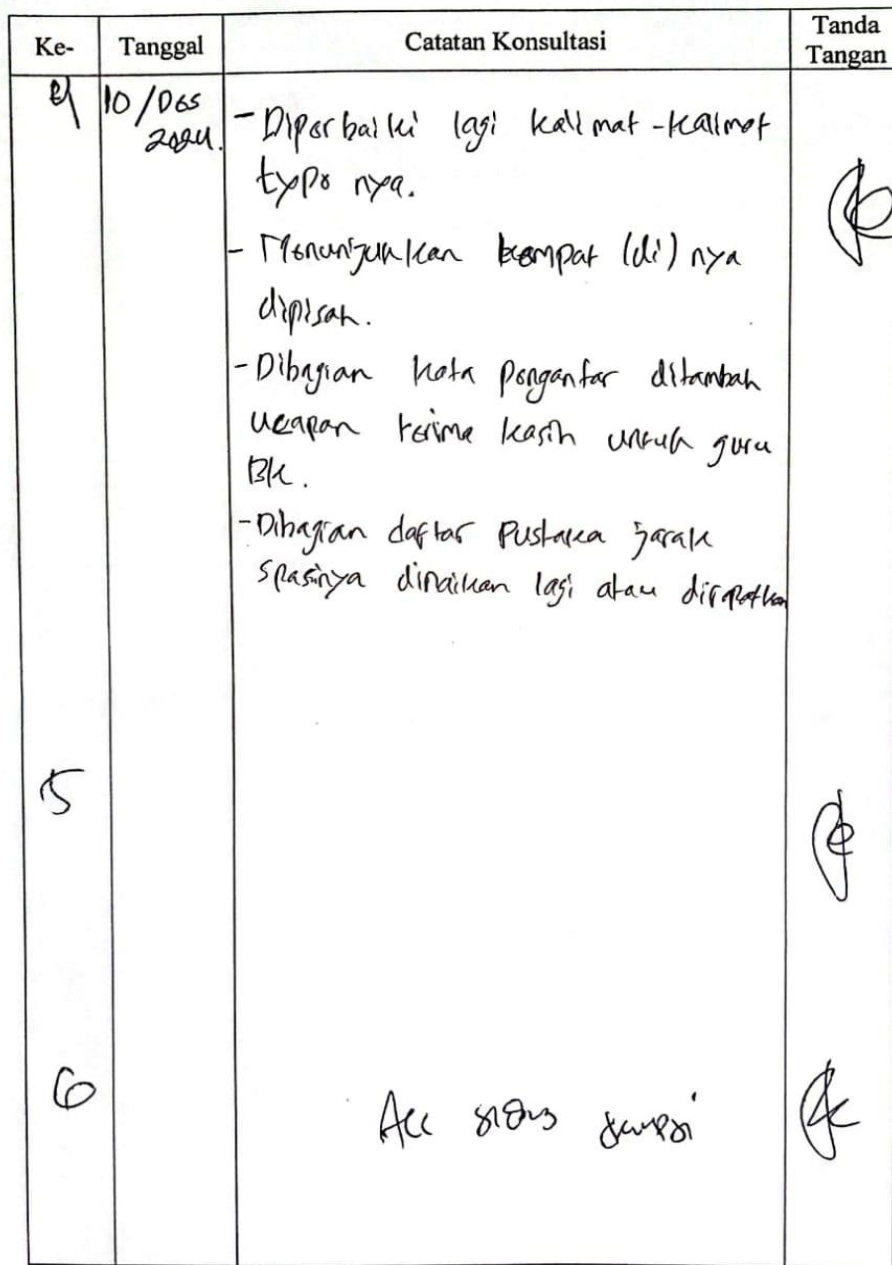 Ke- Tanggal Catatan Konsultasi Tanda Tangan
4 10/Des 2024. - Diperbaiki lagi kalimat-kalimat
typo nya.
- Menunjukkan tempat (di) nya
dipisah.
- Dibagian kata pengantar ditambah
ucapan terima kasih untuk guru
BK.
- Dibagian daftar pustaka jarak
spasinya dinaikan lagi atau dirapatkan
5
6 Acc sidang skripsi